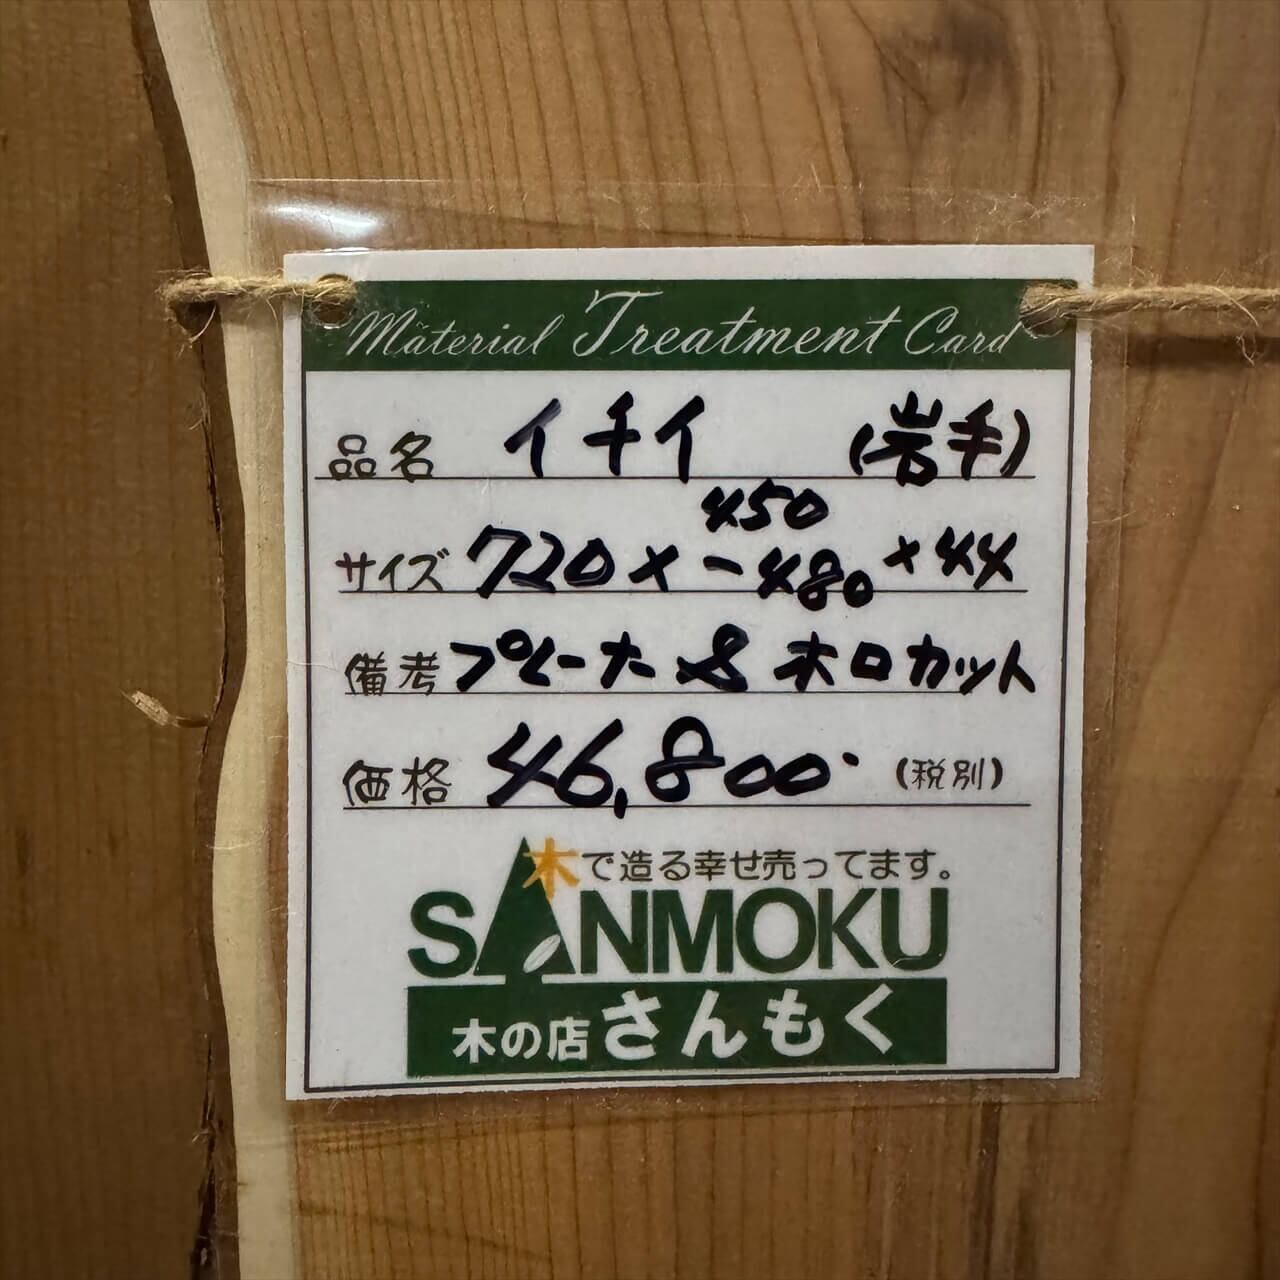 Material Treatment Card
品名 イチイ (岩手)
サイズ 720×450-480×44
備考 プレーナ & 木口カット
価格 46,800 (税別)
木で造る幸せ売ってます。
SANMOKU
木の店 さんもく